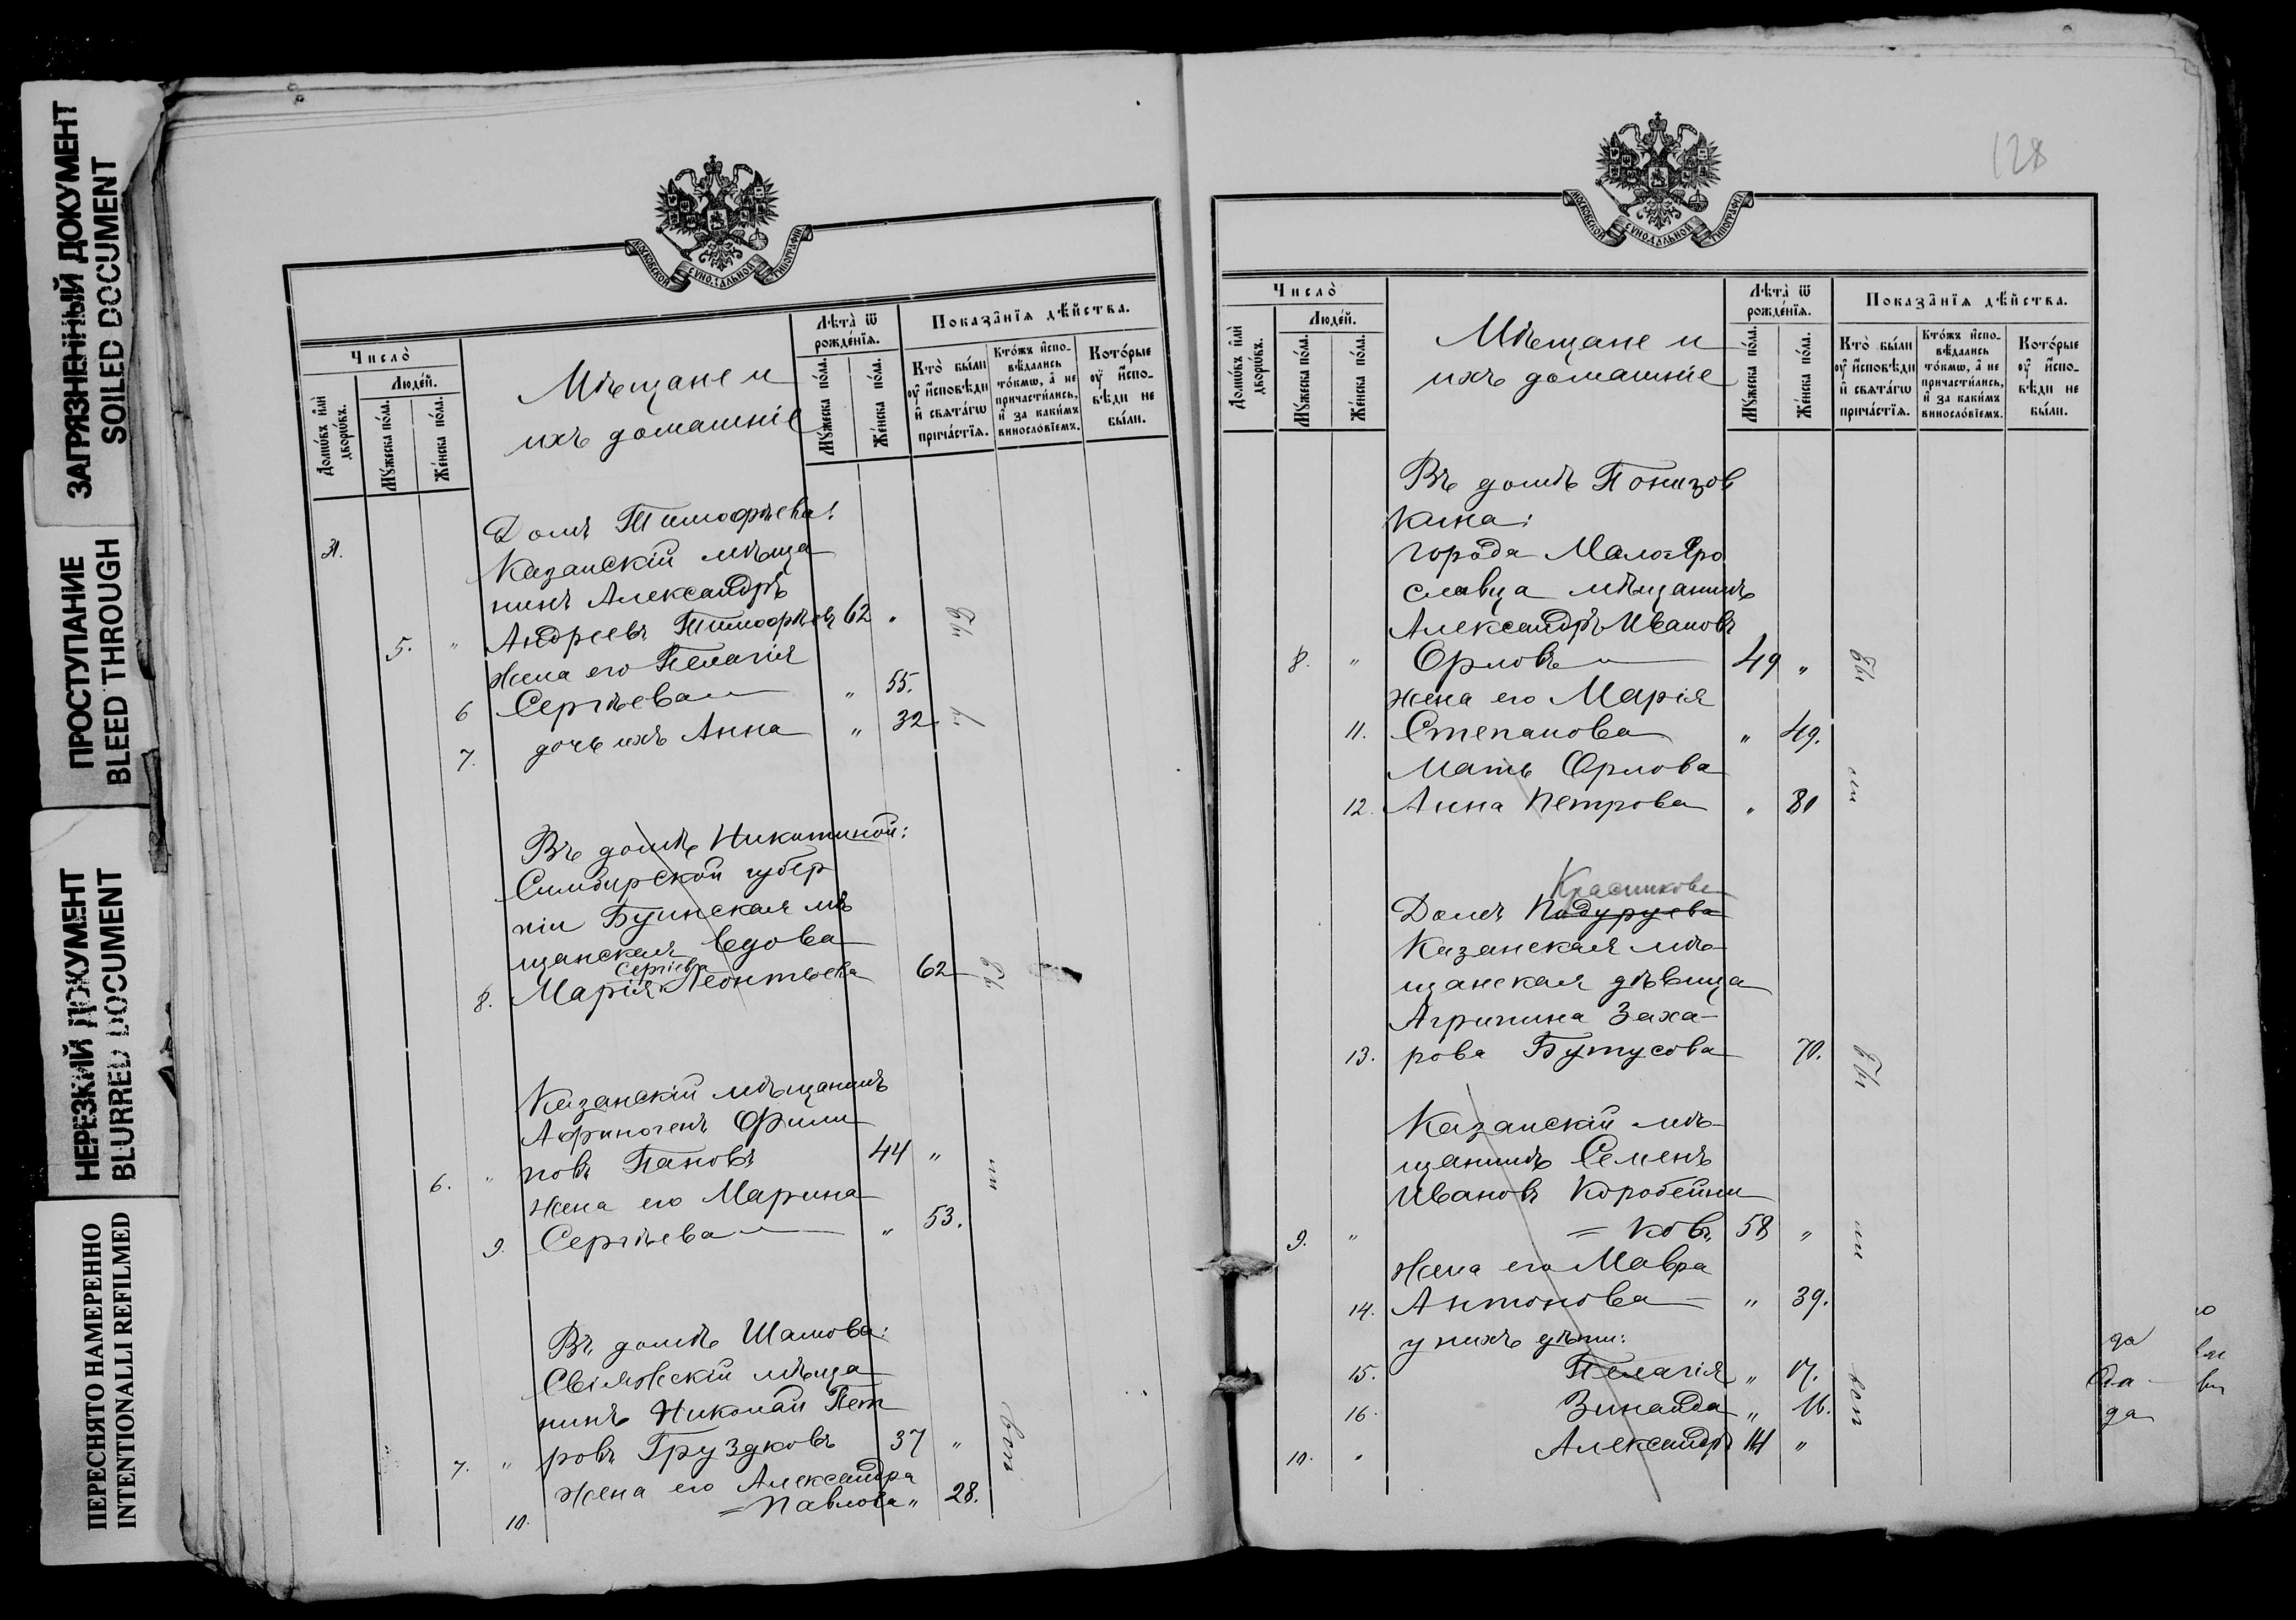 ЗАГРЯЗНЕННЫЙ ДОКУМЕНТ
SOILED DOCUMENT
ПРОСТУПАНИЕ
BLEED THROUGH
НЕРЕЗКИЙ ДОКУМЕНТ
BLURRED DOCUMENT
ПЕРЕСНЯТО НАМЕРЕННО
INTENTIONALLI REFILMED
МОСКОВСКОЙ СѴНОДАЛЬНОЙ ТИПОГРАФІИ
Число̀
Людéй.
Домѡ́въ и҆лѝ дворѡ́въ.
Мꙋ́жеска по́ла.
Же́нска по́ла.
Мѣщане и
ихъ домашніе
Лѣта̀ ѿ рожде́нїѧ.
Мꙋ́жеска по́ла.
Же́нска по́ла.
Показа̑нїѧ дѣ́йства.
Кто̀ бы́ли ᲂу҆ и҆сповѣ́ди и҆ свѧта́гѡ прича́стїѧ.
Кто́жъ и҆сповѣ́дались то́кмѡ, а҆ не причасти́лись, и҆ за каки́мъ виносло́вїемъ.
Кото́рые ᲂу҆ и҆сповѣди не бы́ли.
Домъ Тимофѣева:
31. Казанскій мѣща
нинъ Александръ
5. " Андреевъ Тимофѣевъ 62 "
жена его Пелагія
6 Сергѣева " 55.
7. дочь ихъ Анна " 32.
Въ домѣ Никитиной:
Симбирской губер
ніи Буинская мѣ
щанская вдова
Сергіева
8. Марія Леонтьева 62
Казанскій мѣщанинъ
Афиногенъ Фили
6. " повъ Пановъ 44 "
жена его Марина
9. Сергѣева " 53.
Въ домѣ Шамова:
Свіяжскій мѣща
нинъ Николай Пет
7. " ровъ Груздковъ 37 "
жена его Александра
10. = Павлова " 28.
были
128
МОСКОВСКОЙ СѴНОДАЛЬНОЙ ТИПОГРАФІИ
Число̀
Людéй.
Домѡ́въ и҆лѝ дворѡ́въ.
Мꙋ́жеска по́ла.
Же́нска по́ла.
Мѣщане и
ихъ домашніе
Лѣта̀ ѿ рожде́нїѧ.
Мꙋ́жеска по́ла.
Же́нска по́ла.
Показа̑нїѧ дѣ́йства.
Кто̀ бы́ли ᲂу҆ и҆сповѣ́ди и҆ свѧта́гѡ прича́стїѧ.
Кто́жъ и҆сповѣ́дались то́кмѡ, а҆ не причасти́лись, и҆ за каки́мъ виносло́вїемъ.
Кото́рые ᲂу҆ и҆сповѣди не бы́ли.
Въ домѣ Понизов
кина:
города Мало=Яро
славца мѣщанинъ
Александръ Ивановъ
8. " Орловъ 49 "
жена его Марія
11. Степанова " 49.
Мать Орлова
12. Анна Петрова " 80
Красикова
Домъ Подуруева
Казанская мѣ-
щанская дѣвица
Агрипина Заха-
13. рова Бутусова 70.
Казанскій мѣ-
щанинъ Семенъ
Ивановъ Коробейни
9. " = ковъ 58 "
жена его Мавра
14. Антонова " 39.
у нихъ дѣти:
15. Пелагія " 17.
16. Зинаида " 16.
10. " Александръ 14 "
да
да